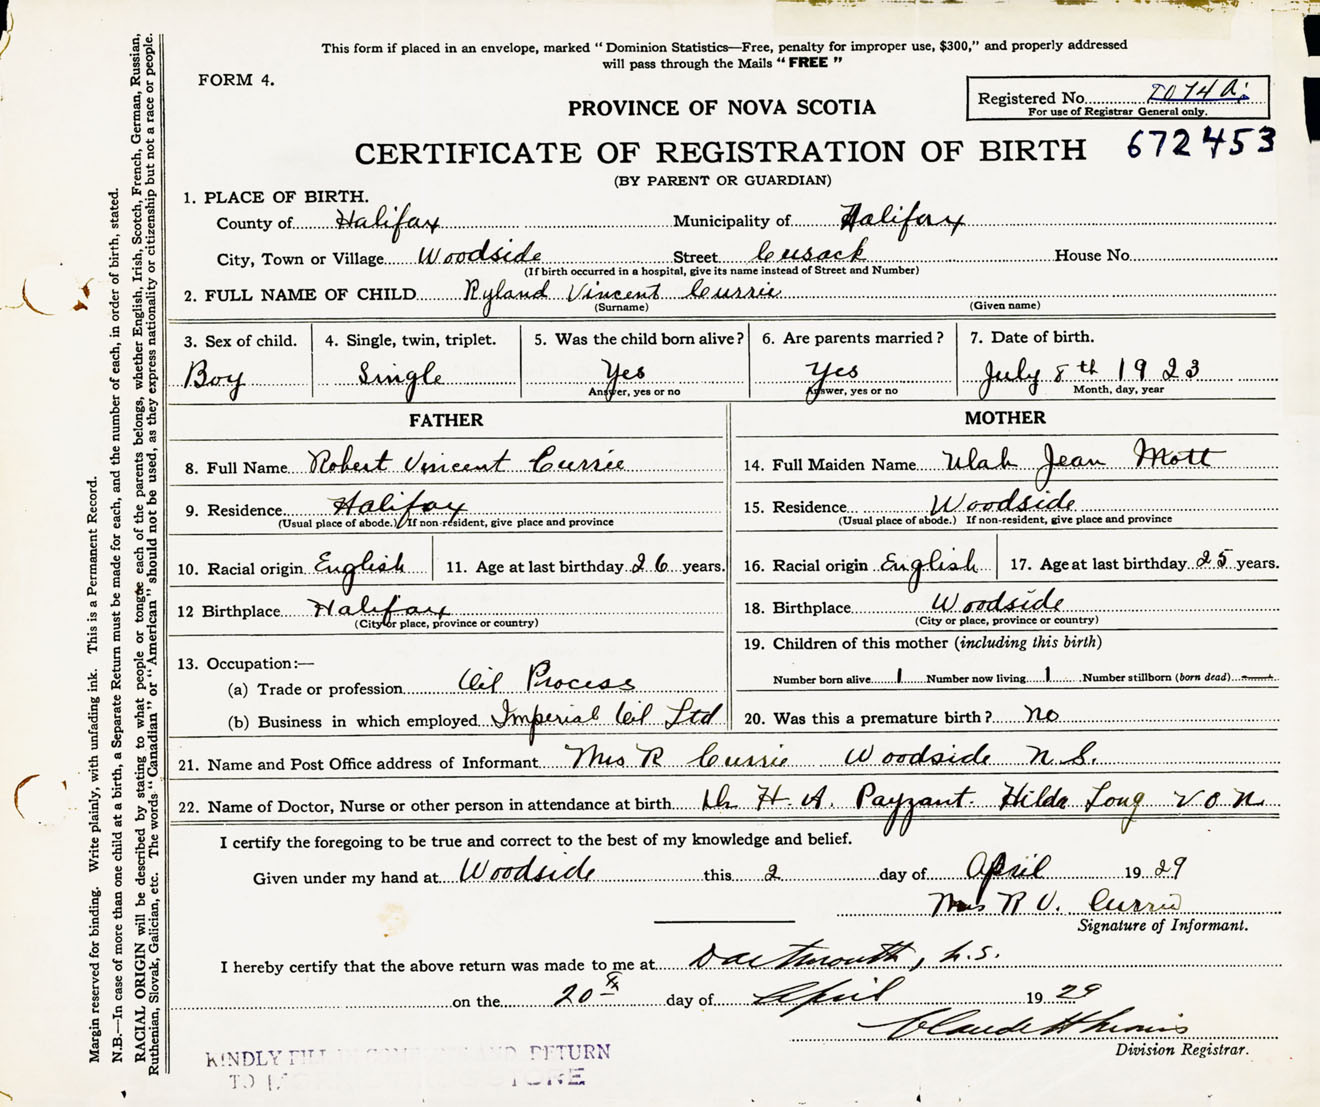 This form if placed in an envelope, marked "Dominion Statistics—Free, penalty for improper use, $300," and properly addressed
will pass through the Mails "FREE"
FORM 4.
Registered No. 2074 a.
For use of Registrar General only.
PROVINCE OF NOVA SCOTIA
CERTIFICATE OF REGISTRATION OF BIRTH 672453
(BY PARENT OR GUARDIAN)
1. PLACE OF BIRTH.
County of Halifax Municipality of Halifax
City, Town or Village Woodside Street Cusack House No.
(If birth occurred in a hospital, give its name instead of Street and Number)
2. FULL NAME OF CHILD Ryland Vincent Currie
(Surname) (Given name)
3. Sex of child. 4. Single, twin, triplet. 5. Was the child born alive? 6. Are parents married? 7. Date of birth.
Boy Single Yes Yes July 8th 1923
Answer, yes or no Answer, yes or no Month, day, year
FATHER MOTHER
8. Full Name Robert Vincent Currie 14. Full Maiden Name Ulah Jean Mott
9. Residence Halifax 15. Residence Woodside
(Usual place of abode.) If non-resident, give place and province (Usual place of abode.) If non-resident, give place and province
10. Racial origin English 11. Age at last birthday 26 years. 16. Racial origin English 17. Age at last birthday 25 years.
12 Birthplace Halifax 18. Birthplace Woodside
(City or place, province or country) (City or place, province or country)
19. Children of this mother (including this birth)
13. Occupation:—
(a) Trade or profession Oil Process Number born alive 1 Number now living 1 Number stillborn (born dead)
(b) Business in which employed Imperial Oil Ltd 20. Was this a premature birth? no
21. Name and Post Office address of Informant Mrs R Currie Woodside N.S.
22. Name of Doctor, Nurse or other person in attendance at birth Dr H. A. Payzant. Hilda Long V O N
I certify the foregoing to be true and correct to the best of my knowledge and belief.
Given under my hand at Woodside this 2 day of April 1929
Mrs R V. Currie
Signature of Informant.
I hereby certify that the above return was made to me at Dartmouth, N.S.
on the 20th day of April 1929
Division Registrar.
KINDLY FILL AND RETURN
TO
Margin reserved for binding. Write plainly, with unfading ink. This is a Permanent Record.
N.B.—In case of more than one child at a birth, a Separate Return must be made for each, and the number of each, in order of birth, stated.
RACIAL ORIGIN will be described by stating to what people or tongue each of the parents belongs, whether English, Irish, Scotch, French, German, Russian,
Ruthenian, Slovak, Galician, etc. The words "Canadian" or "American" should not be used, as they express nationality or citizenship but not a race or people.